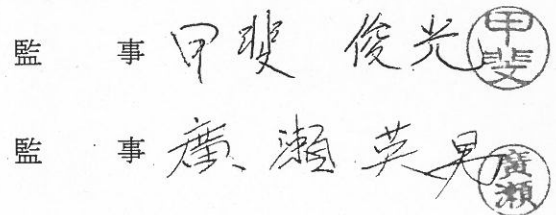 監事 甲斐 俊光 甲斐
監事 廣瀬 英晃 廣瀬